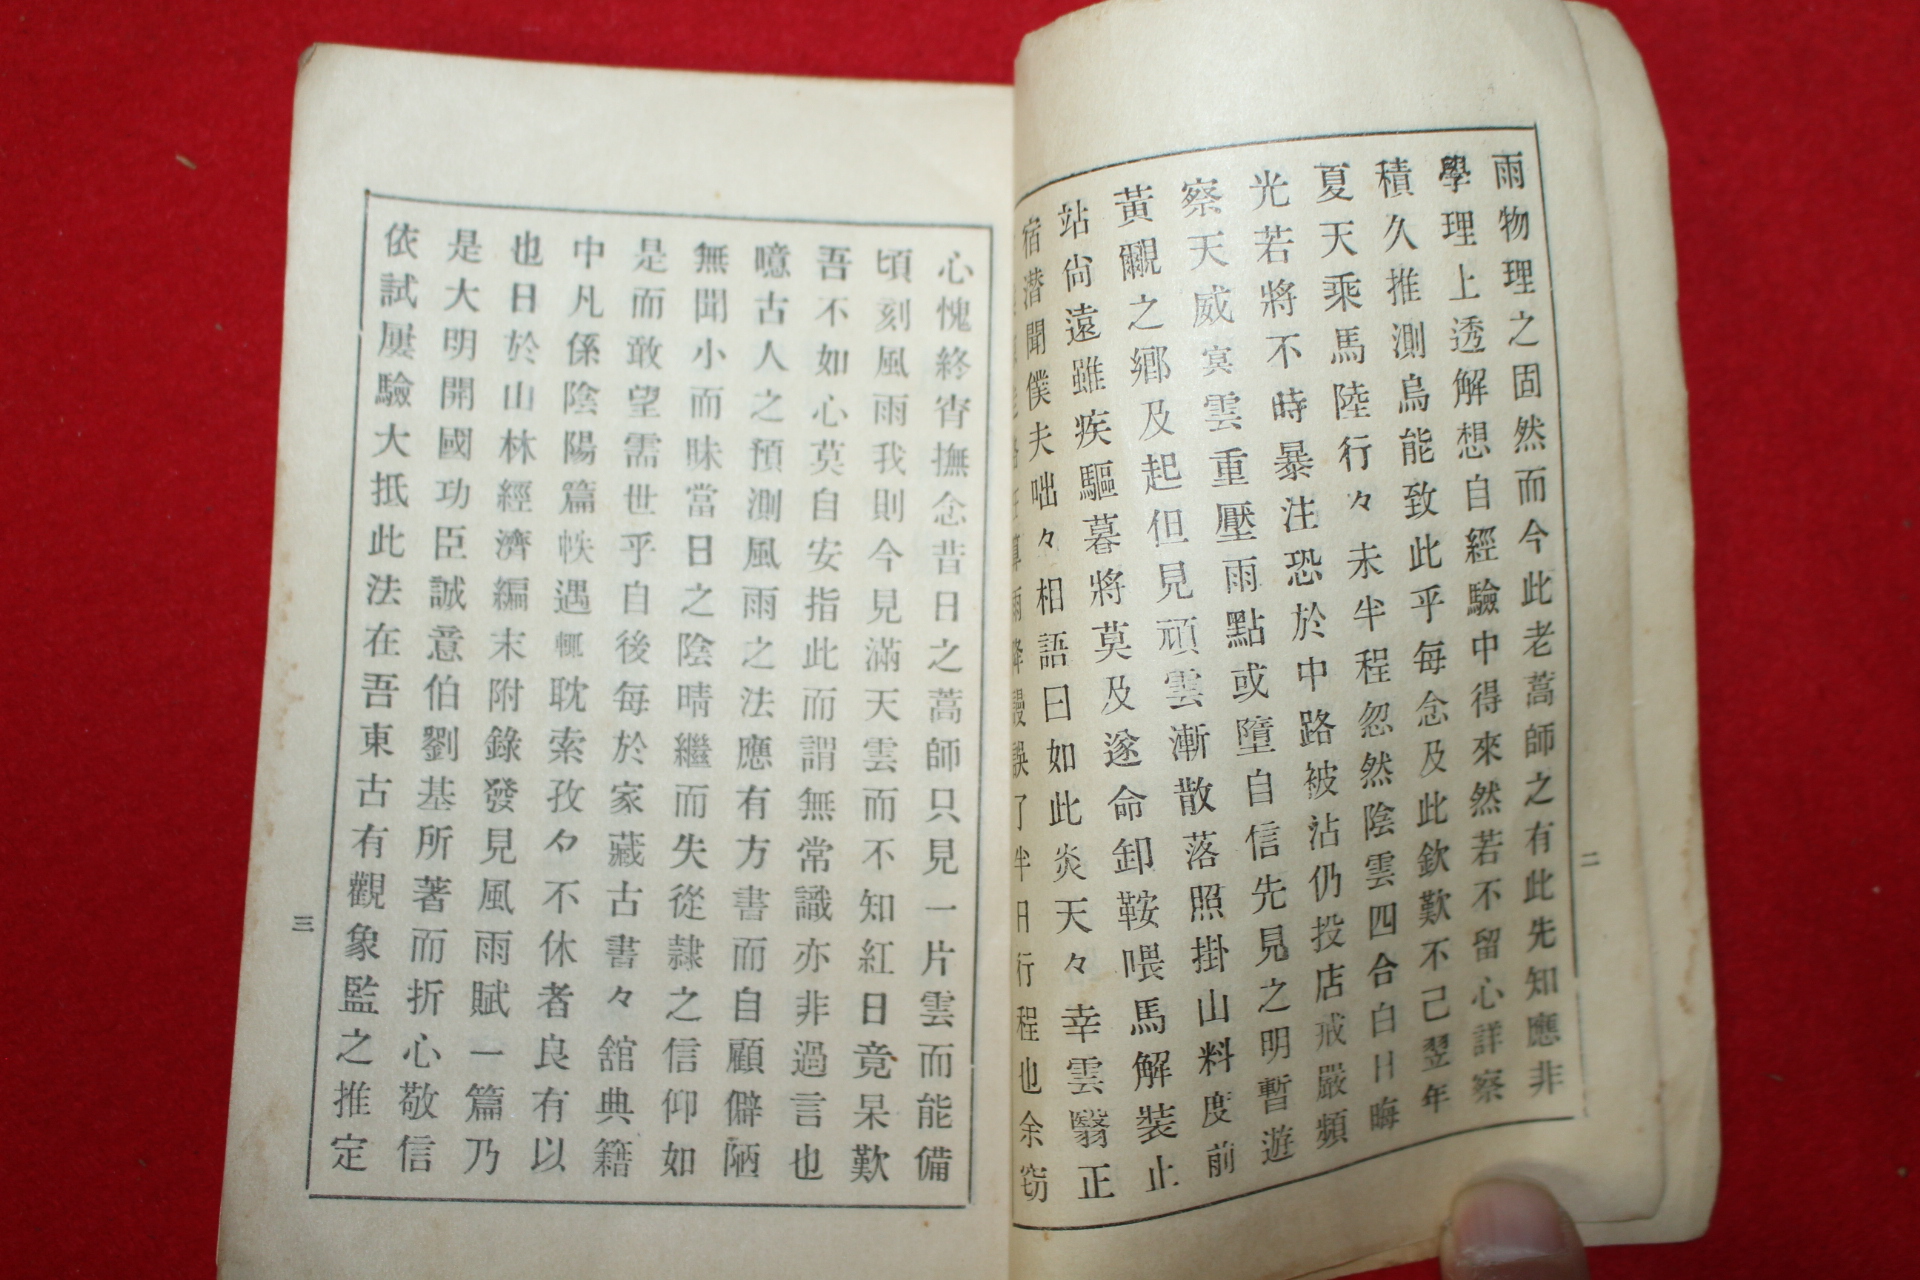 雨物理之固然而今此老蒿師之有此先知應非
學理上透解想自經驗中得來然若不留心詳察
積久推測烏能致此乎每念及此欽歎不己翌年
夏天乘馬陸行々未半程忽然陰雲四合白日晦
光若將不時暴注恐於中路被沾仍投店戒嚴頻
察天威寞雲重壓雨點或墮自信先見之明暫遊
黃覼之鄕及起但見頑雲漸散落照掛山料度前
站尙遠雖疾驅暮將莫及遂命卸鞍喂馬解装止
宿潛聞僕夫咄々相語曰如此炎天々幸雲翳正
雨降誤了半日行程也余窃
二
心愧終宵撫念昔日之蒿師只見一片雲而能備
頃刻風雨我則今見滿天雲而不知紅日竟杲歎
吾不如心莫自安指此而謂無常識亦非過言也
噫古人之預測風雨之法應有方書而自顧僻陋
無聞小而昧當日之陰晴繼而失從隷之信仰如
是而敢望需世乎自後每於家藏古書々舘典籍
中凡係陰陽篇帙遇輒耽索孜々不休者良有以
也日於山林經濟編末附錄發見風雨賦一篇乃
是大明開國功臣誠意伯劉基所著而折心敬信
依試屢驗大抵此法在吾東古有觀象監之推定
三